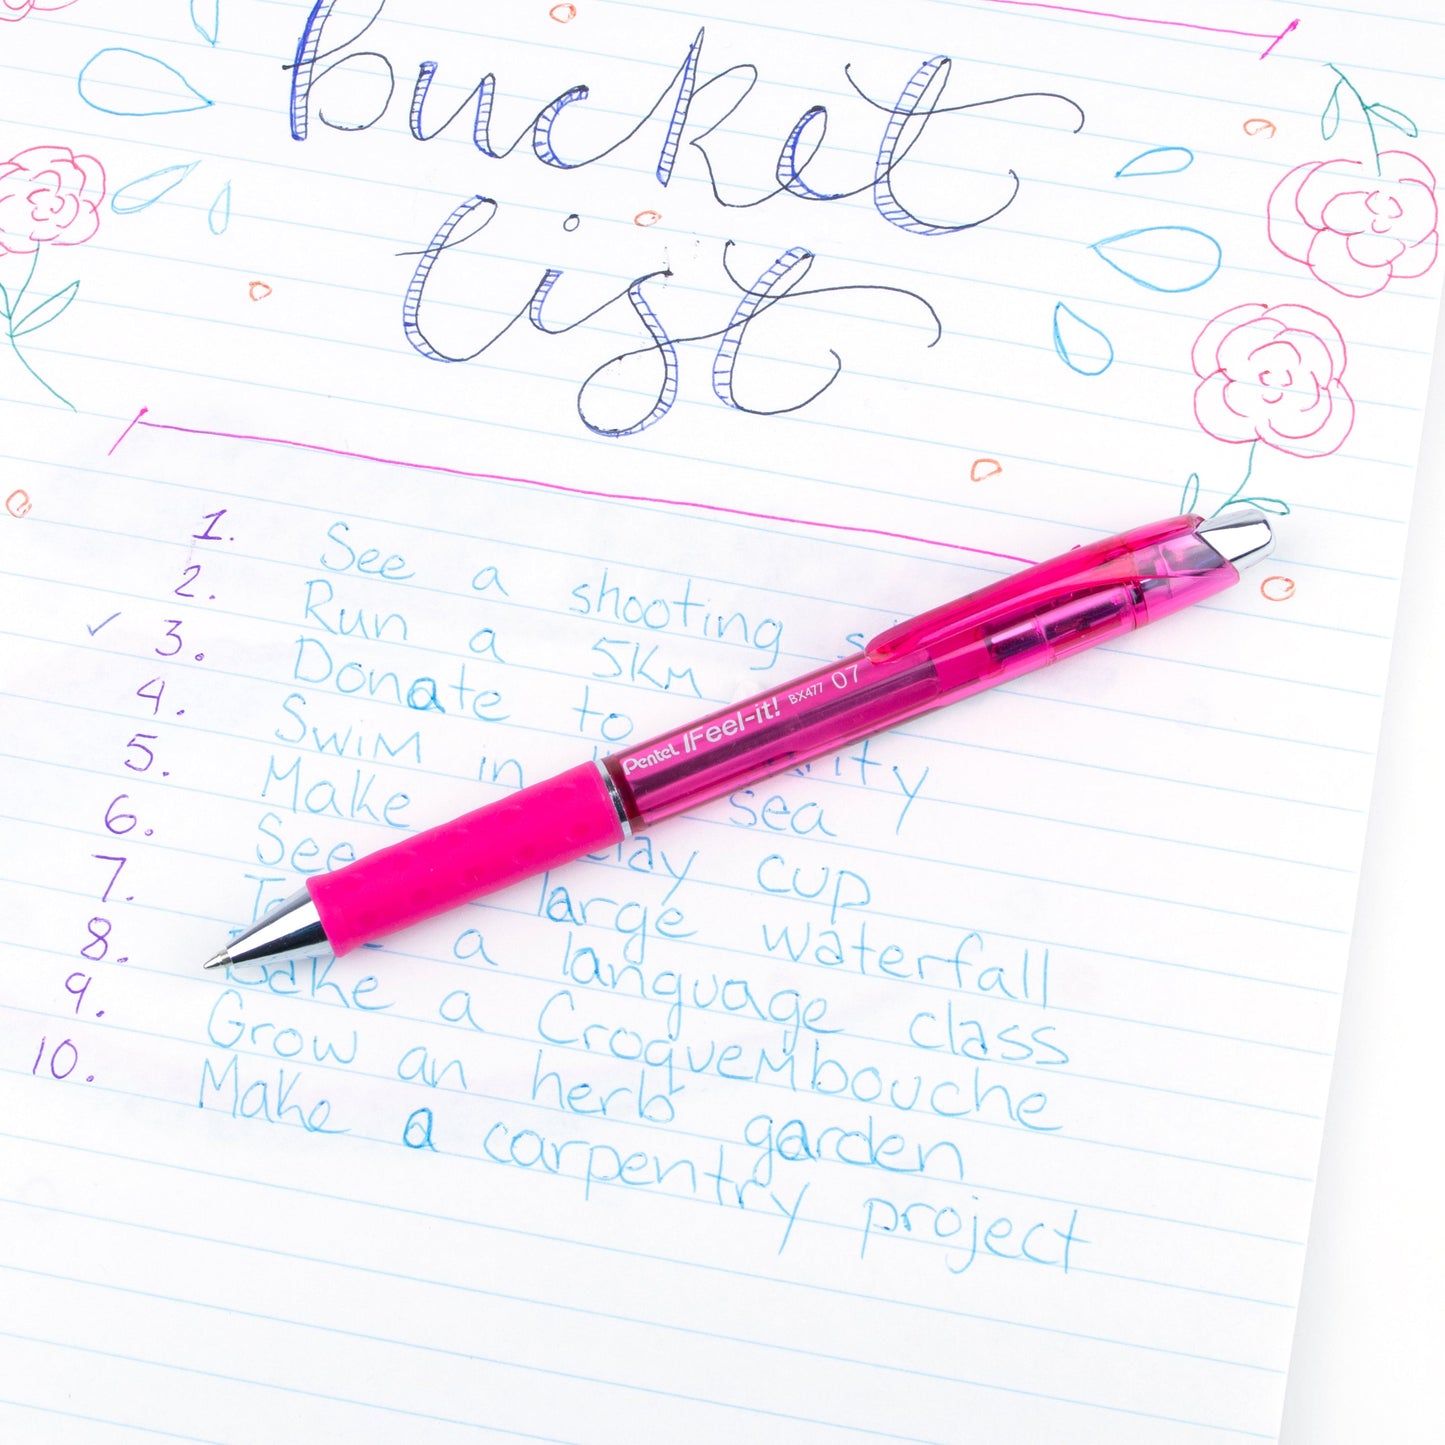 Bucket
List
1. See a shooting
2. Run a 5KM
✓ 3. Donate to
4. Swim in sea
5. Make clay cup
6. See large waterfall
7. a language class
8. Bake a Croquembouche
9. Grow an herb garden
10. Make a carpentry project
Pentel iFeel-it! BX477 07